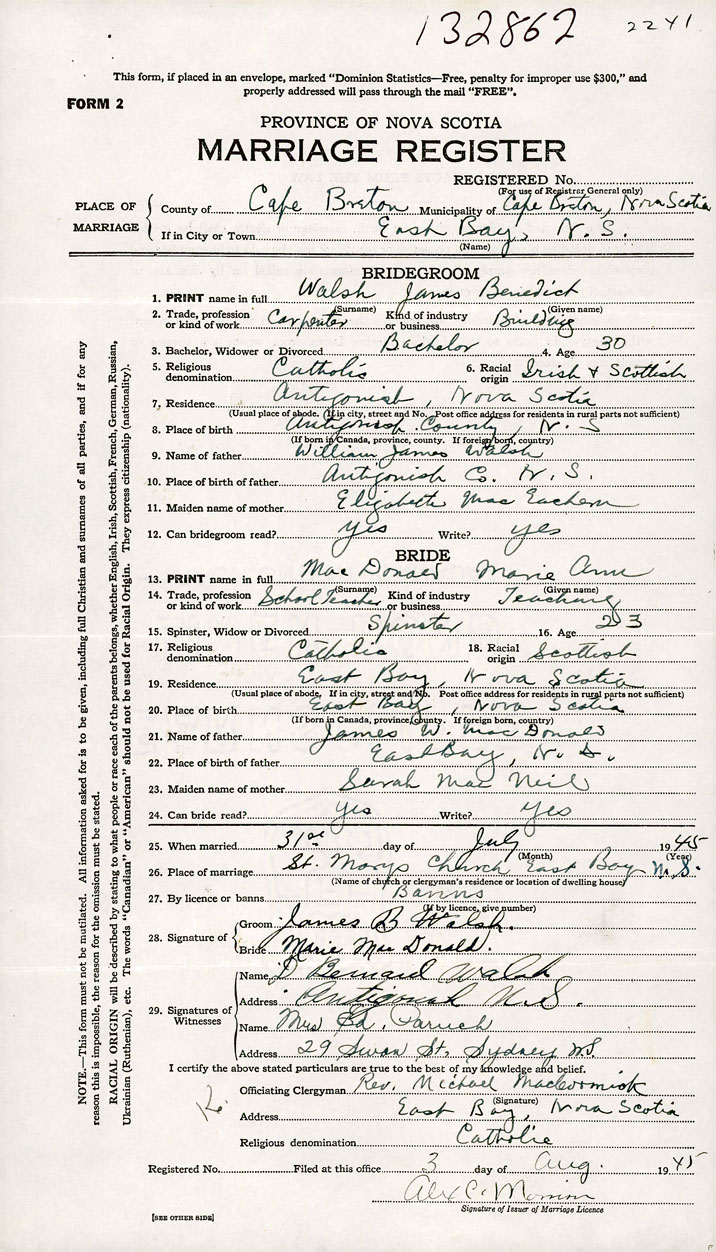 132862 2241
This form, if placed in an envelope, marked "Dominion Statistics—Free, penalty for improper use $300," and
properly addressed will pass through the mail "FREE".
FORM 2
PROVINCE OF NOVA SCOTIA
MARRIAGE REGISTER
REGISTERED No.
(For use of Registrar General only)
PLACE OF MARRIAGE
County of Cape Breton Municipality of Cape Breton, Nova Scotia
If in City or Town East Bay, N. S.
(Name)
BRIDEGROOM
1. PRINT name in full Walsh James Benedict
(Surname) (Given name)
2. Trade, profession or kind of work Carpenter Kind of industry or business Building
3. Bachelor, Widower or Divorced Bachelor 4. Age 30
5. Religious denomination Catholic 6. Racial origin Irish & Scottish
7. Residence Antigonish, Nova Scotia
(Usual place of abode. If in city, street and No. Post office address for residents in rural parts not sufficient)
8. Place of birth Antigonish County, N. S
(If born in Canada, province, county. If foreign born, country)
9. Name of father William James Walsh
10. Place of birth of father Antigonish Co. N. S.
11. Maiden name of mother Elizabeth Mac Eachern
12. Can bridegroom read? yes Write? yes
BRIDE
13. PRINT name in full Mac Donald Marie Ann
(Surname) (Given name)
14. Trade, profession or kind of work School Teacher Kind of industry or business Teaching
15. Spinster, Widow or Divorced Spinster 16. Age 23
17. Religious denomination Catholic 18. Racial origin Scottish
19. Residence East Bay, Nova Scotia
(Usual place of abode. If in city, street and No. Post office address for residents in rural parts not sufficient)
20. Place of birth East Bay, Nova Scotia
(If born in Canada, province, county. If foreign born, country)
21. Name of father James W. Mac Donald
22. Place of birth of father East Bay, N. S.
23. Maiden name of mother Sarah Mac Neil
24. Can bride read? yes Write? yes
25. When married 31st day of July 1945
(Month) (Year)
26. Place of marriage St. Marys Church East Bay N.S.
(Name of church or clergyman's residence or location of dwelling house)
27. By licence or banns Banns
(If by licence, give number)
28. Signature of
Groom James B Walsh.
Bride Marie Mac Donald.
29. Signatures of Witnesses
Name D Bernard Walsh
Address Antigonish N.S.
Name Mrs Ed.
Address 29 Swan St. Sydney N.S.
I certify the above stated particulars are true to the best of my knowledge and belief.
Officiating Clergyman Rev. Michael MacCormick
(Signature)
Address East Bay, Nova Scotia
Religious denomination Catholic
Registered No. Filed at this office 3 day of Aug. 1945
Alex C. Morrison
Signature of Issuer of Marriage Licence
[SEE OTHER SIDE]
NOTE.—This form must not be mutilated. All information asked for is to be given, including full Christian and surnames of all parties, and if for any
reason this is impossible, the reason for the omission must be stated.
RACIAL ORIGIN will be described by stating to what people or race each of the parents belongs, whether English, Irish, Scottish, French, German, Russian,
Ukrainian (Ruthenian), etc. The words "Canadian" or "American" should not be used for Racial Origin. They express citizenship (nationality).